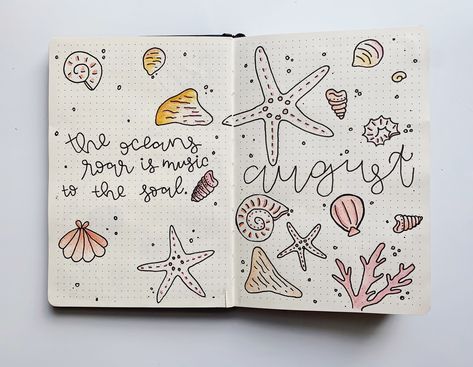 the oceans
roar is music
to the soal.
august